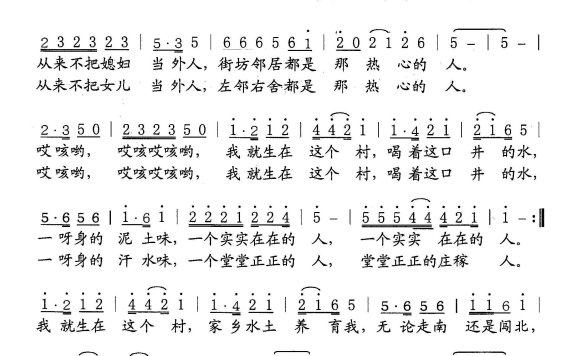 2 3 2 3 2 3 2 3 | 5·3 5 | 6 6 6 5 6 i | 2 0 2 1 2 6 | 5 - | 5 - |
从来不把媳妇 当外人，街坊邻居都是 那 热 心的 人。
从来不把女儿 当外人，左邻右舍都是 那 热 心的 人。
2·3 5 0 | 2 3 2 3 2 3 5 0 | 1·2 1 2 | 4 4 2 1 | 1·4 2 1 | 2 1 6 5 |
哎咳哟， 哎咳哎咳哟， 我就生在 这个 村，喝着这口 井 的水，
哎咳哟， 哎咳哎咳哟， 我就生在 这个 村，喝着这口 井 的水，
5·6 5 6 | 1·6 1 | 2 2 2 1 2 2 4 | 5 - | 5 5 5 4 4 4 2 1 | 1 - :‖
一呀身的 泥 土味，一个实实在在的 人， 一个实实 在在的 人。
一呀身的 汗 水味，一个堂堂正正的 人， 堂堂正正的庄稼 人。
1·2 1 2 | 4 4 2 1 | 1·4 2 1 | 2 1 6 5 | 5·6 5 6 | 1 1 6 1 |
我就生在 这个 村， 家乡水土 养 育我，无论走南 还是闯北，